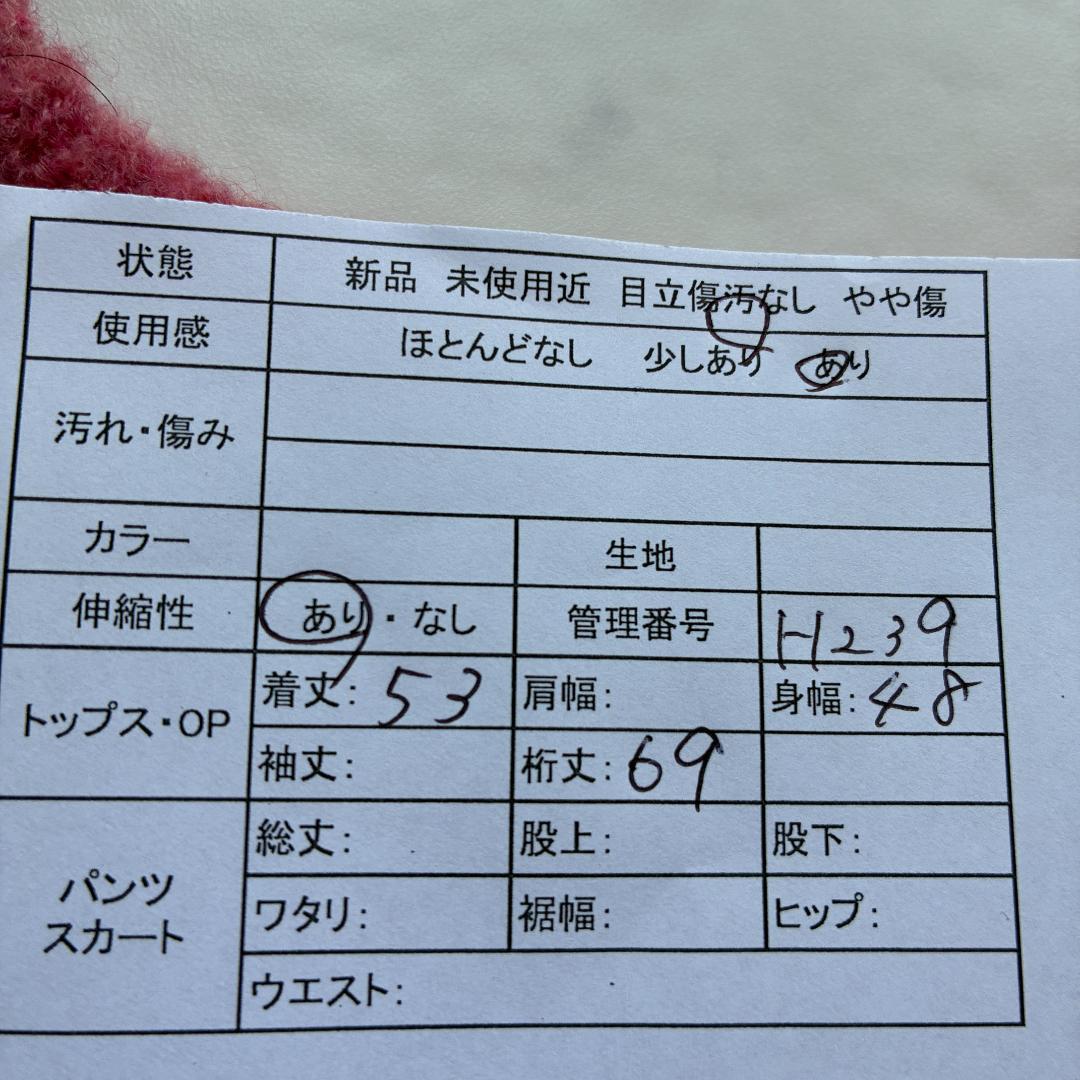 状態 新品 未使用近 目立傷汚なし やや傷
使用感 ほとんどなし 少しあり あり
汚れ・傷み
カラー 生地
伸縮性 あり・なし 管理番号 H239
トップス・OP 着丈: 53 肩幅: 身幅: 48
袖丈: 裄丈: 69
パンツ スカート 総丈: 股上: 股下:
ワタリ: 裾幅: ヒップ:
ウエスト: